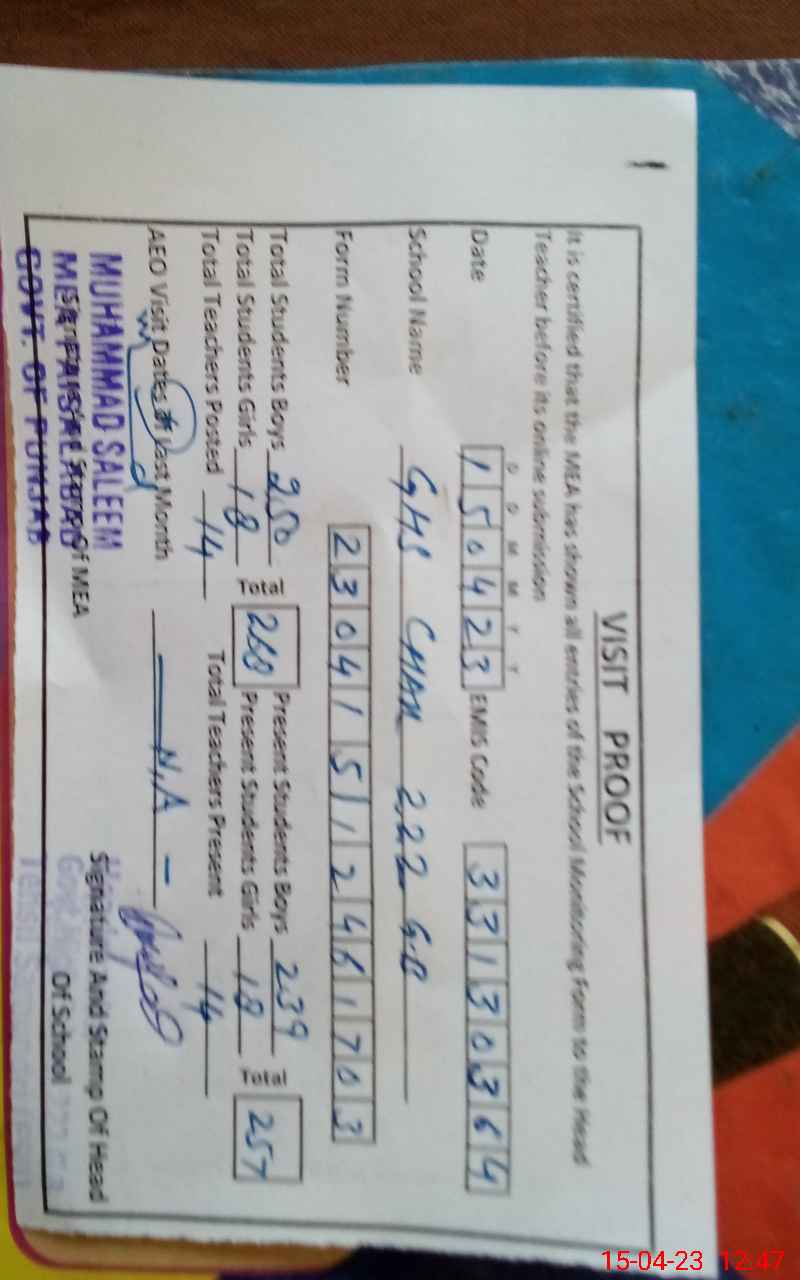 VISIT PROOF
It is certified that the MEA has shown all entries of the School Monitoring Form to the Head
Teacher before its online submission
D D M M Y Y
Date 150423 EMIS Code 33130364
School Name GHS CHAK 222 G.B
Form Number 23041512461703
Total Students Boys 250 Present Students Boys 239
Total Students Girls 18 Total 268 Present Students Girls 18 Total 257
Total Teachers Posted 14 Total Teachers Present 14
AEO Visit Dates Of Last Month N.A -
MUHAMMAD SALEEM
MEA FAISALABAD
GOVT. OF PUNJAB
Signature And Stamp Of MEA
Signature And Stamp Of Head
Of School
15-04-23 12:47